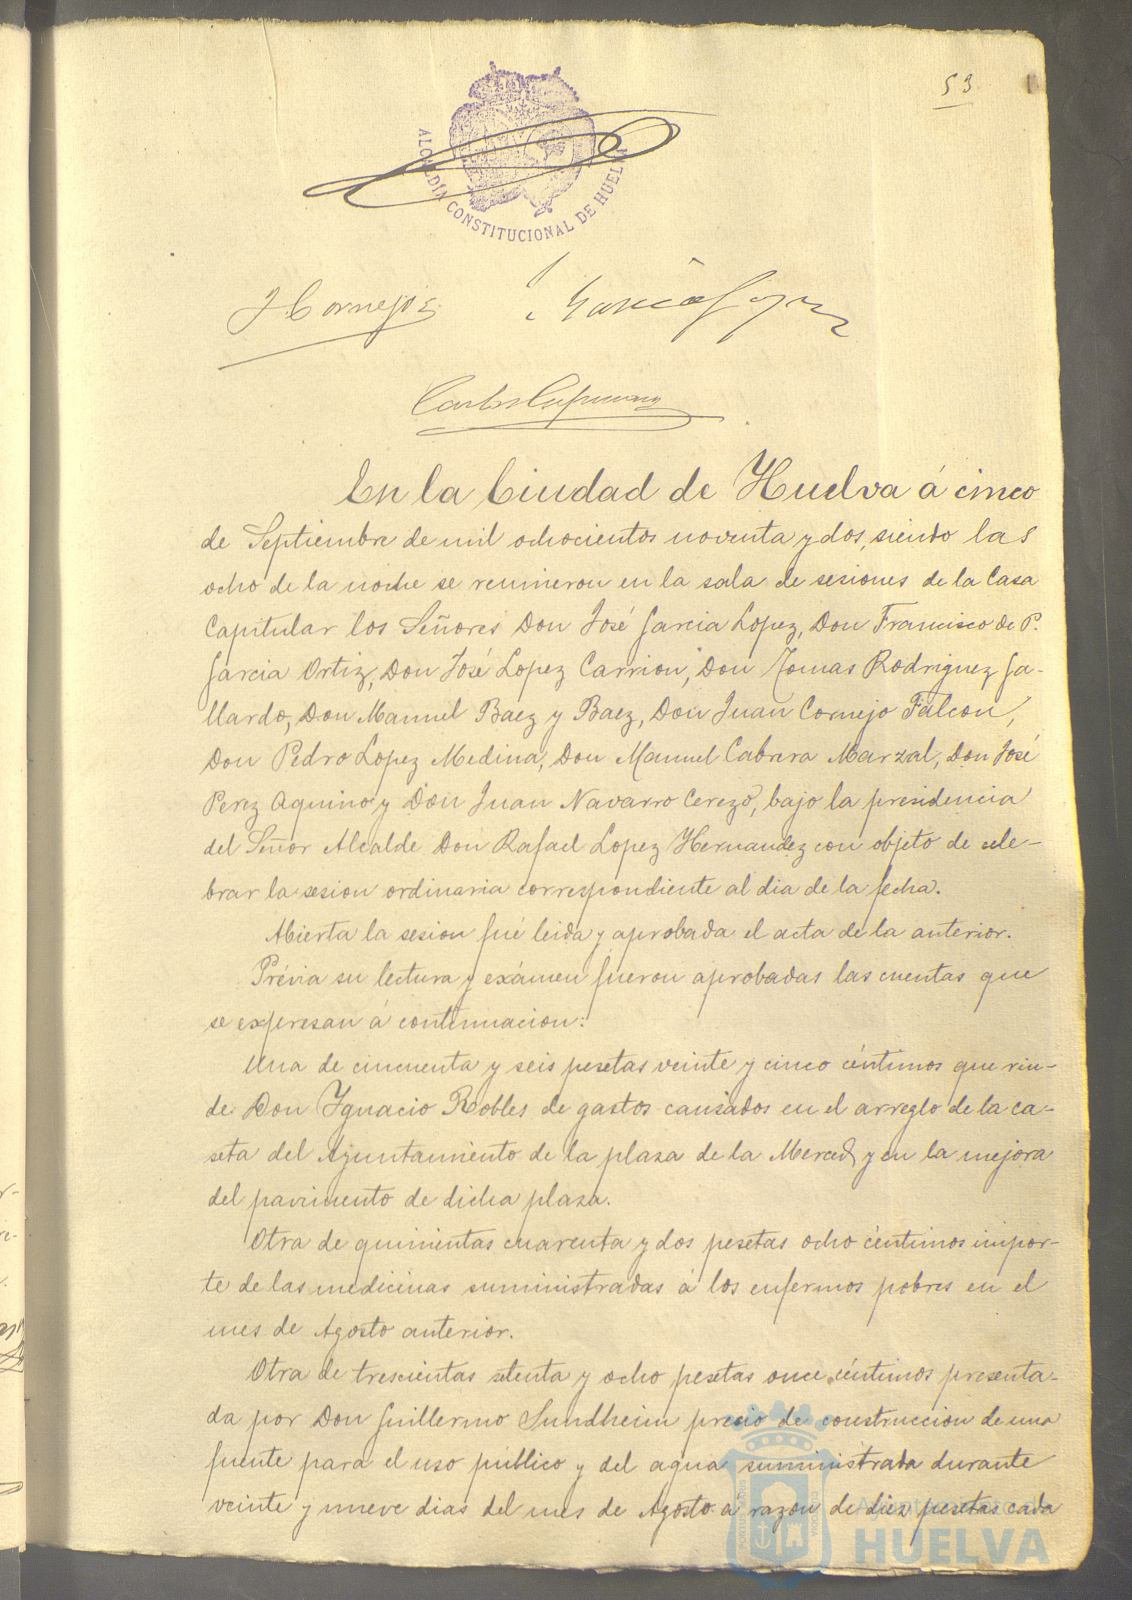 53
ALCALDÍA CONSTITUCIONAL DE HUELVA
Cornejo
Garcia Lopez
En la Ciudad de Huelva á cinco
de Septiembre de mil ochocientos noventa y dos, siendo las
ocho de la noche se reunieron en la sala de sesiones de la Casa
Capitular los Señores Don José Garcia Lopez, Don Francisco de P.
Garcia Ortiz, Don José Lopez Carrion, Don Tomas Rodriguez Ga-
llardo, Don Manuel Baez y Baez, Don Juan Cornejo Falcon,
Don Pedro Lopez Medina, Don Manuel Cabrera Marzal, Don José
Perez Aquino y Don Juan Navarro Cerezo, bajo la presidencia
del Señor Alcalde Don Rafael Lopez Hernandez con objeto de cele-
brar la sesion ordinaria correspondiente al dia de la fecha.
Abierta la sesion fué leida y aprobada el acta de la anterior.
Prévia su lectura y exámen fueron aprobadas las cuentas que
se expresan á continuacion:
Una de cincuenta y seis pesetas veinte y cinco céntimos que rin-
de Don Ygnacio Robles de gastos causados en el arreglo de la ca-
seta del Ayuntamiento de la plaza de la Merced y en la mejora
del pavimento de dicha plaza.
Otra de quinientas cuarenta y dos pesetas ocho céntimos impor-
te de las medicinas suministradas á los enfermos pobres en el
mes de Agosto anterior.
Otra de trescientas setenta y ocho pesetas once céntimos presenta-
da por Don Guillermo Sundheim precio de construccion de una
fuente para el uso público y del agua suministrada durante
veinte y nueve dias del mes de Agosto á razon de diez pesetas cada
Ayuntamiento de
HUELVA